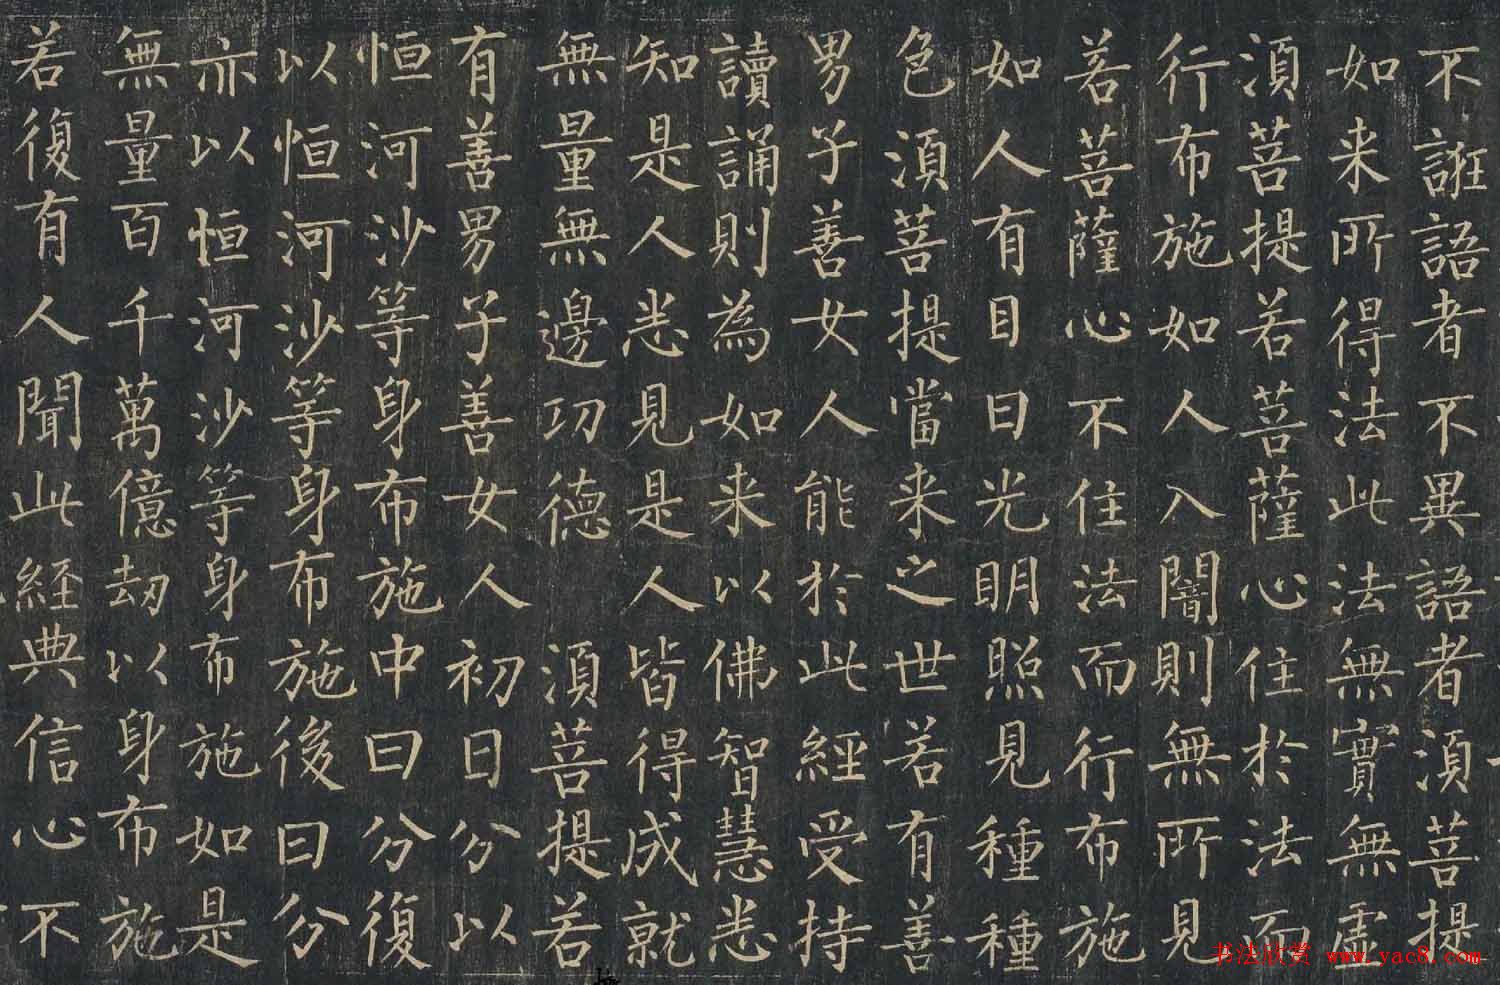 不誑語者不異語者須菩提
如来所得法此法無實無虛
須菩提若菩薩心住於法而
行布施如人入闇則無所見
若菩薩心不住法而行布施
如人有目日光明照見種種
色須菩提當来之世若有善
男子善女人能於此經受持
讀誦則為如来以佛智慧悉
知是人悉見是人皆得成就
無量無邊功德 須菩提若
有善男子善女人初日分以
恒河沙等身布施中日分復
以恒河沙等身布施後日分
亦以恒河沙等身布施如是
無量百千萬億劫以身布施
若復有人聞此経典信心不
书法欣赏 www.yac8.com